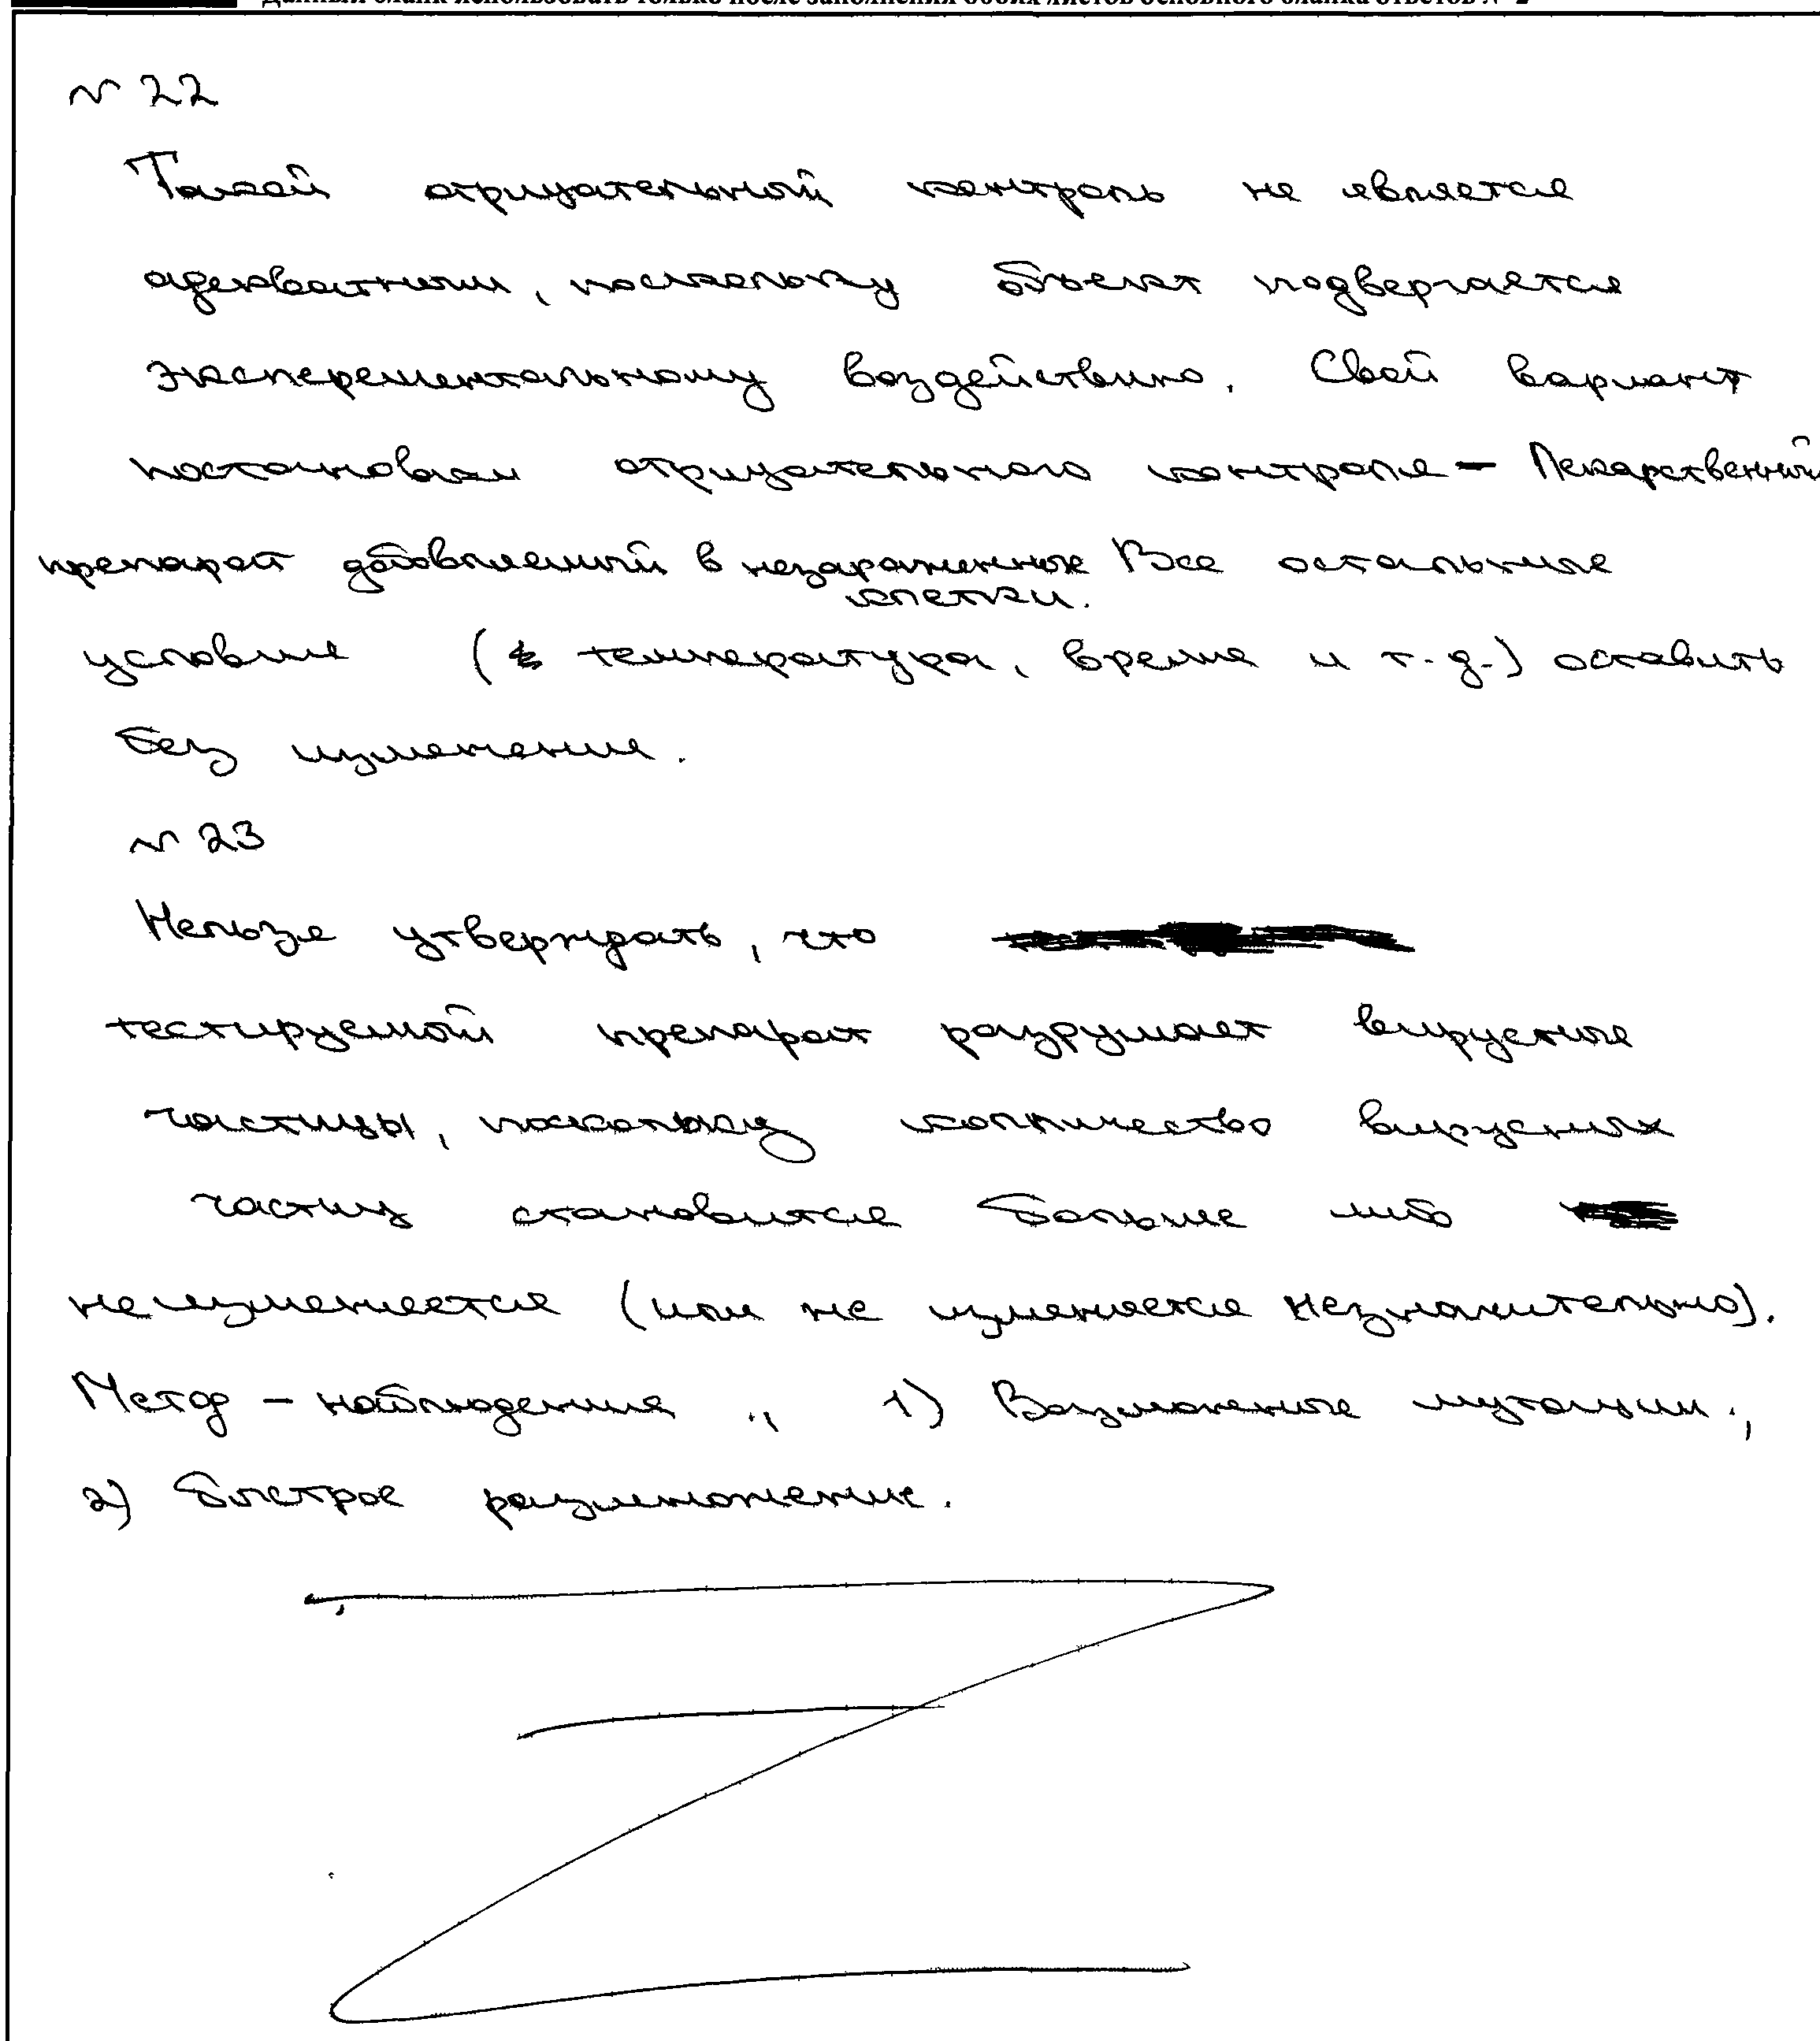 Данный бланк использовать только после заполнения обоих листов основного бланка ответов № 2
№ 22
Такой отрицательный контроль не является
адекватным, поскольку объект подвергается
эксперементальному воздействию. Свой вариант
постановки отрицательного контроля - Лекарственный
препарат добавленный в незараженные Все остальные
клетки.
условие ( температура, время и т.д.) оставить
без изменение.
№ 23
Нельзя утверждать, что
тестируемый препарат разрушает вирусные
частицы, поскольку колличество вирусных
частиц становится больше либо
не изменяется (или не изменяется незначительно).
Метод - наблюдение ., 1) Возможные мутации.,
2) Быстрое размножение.